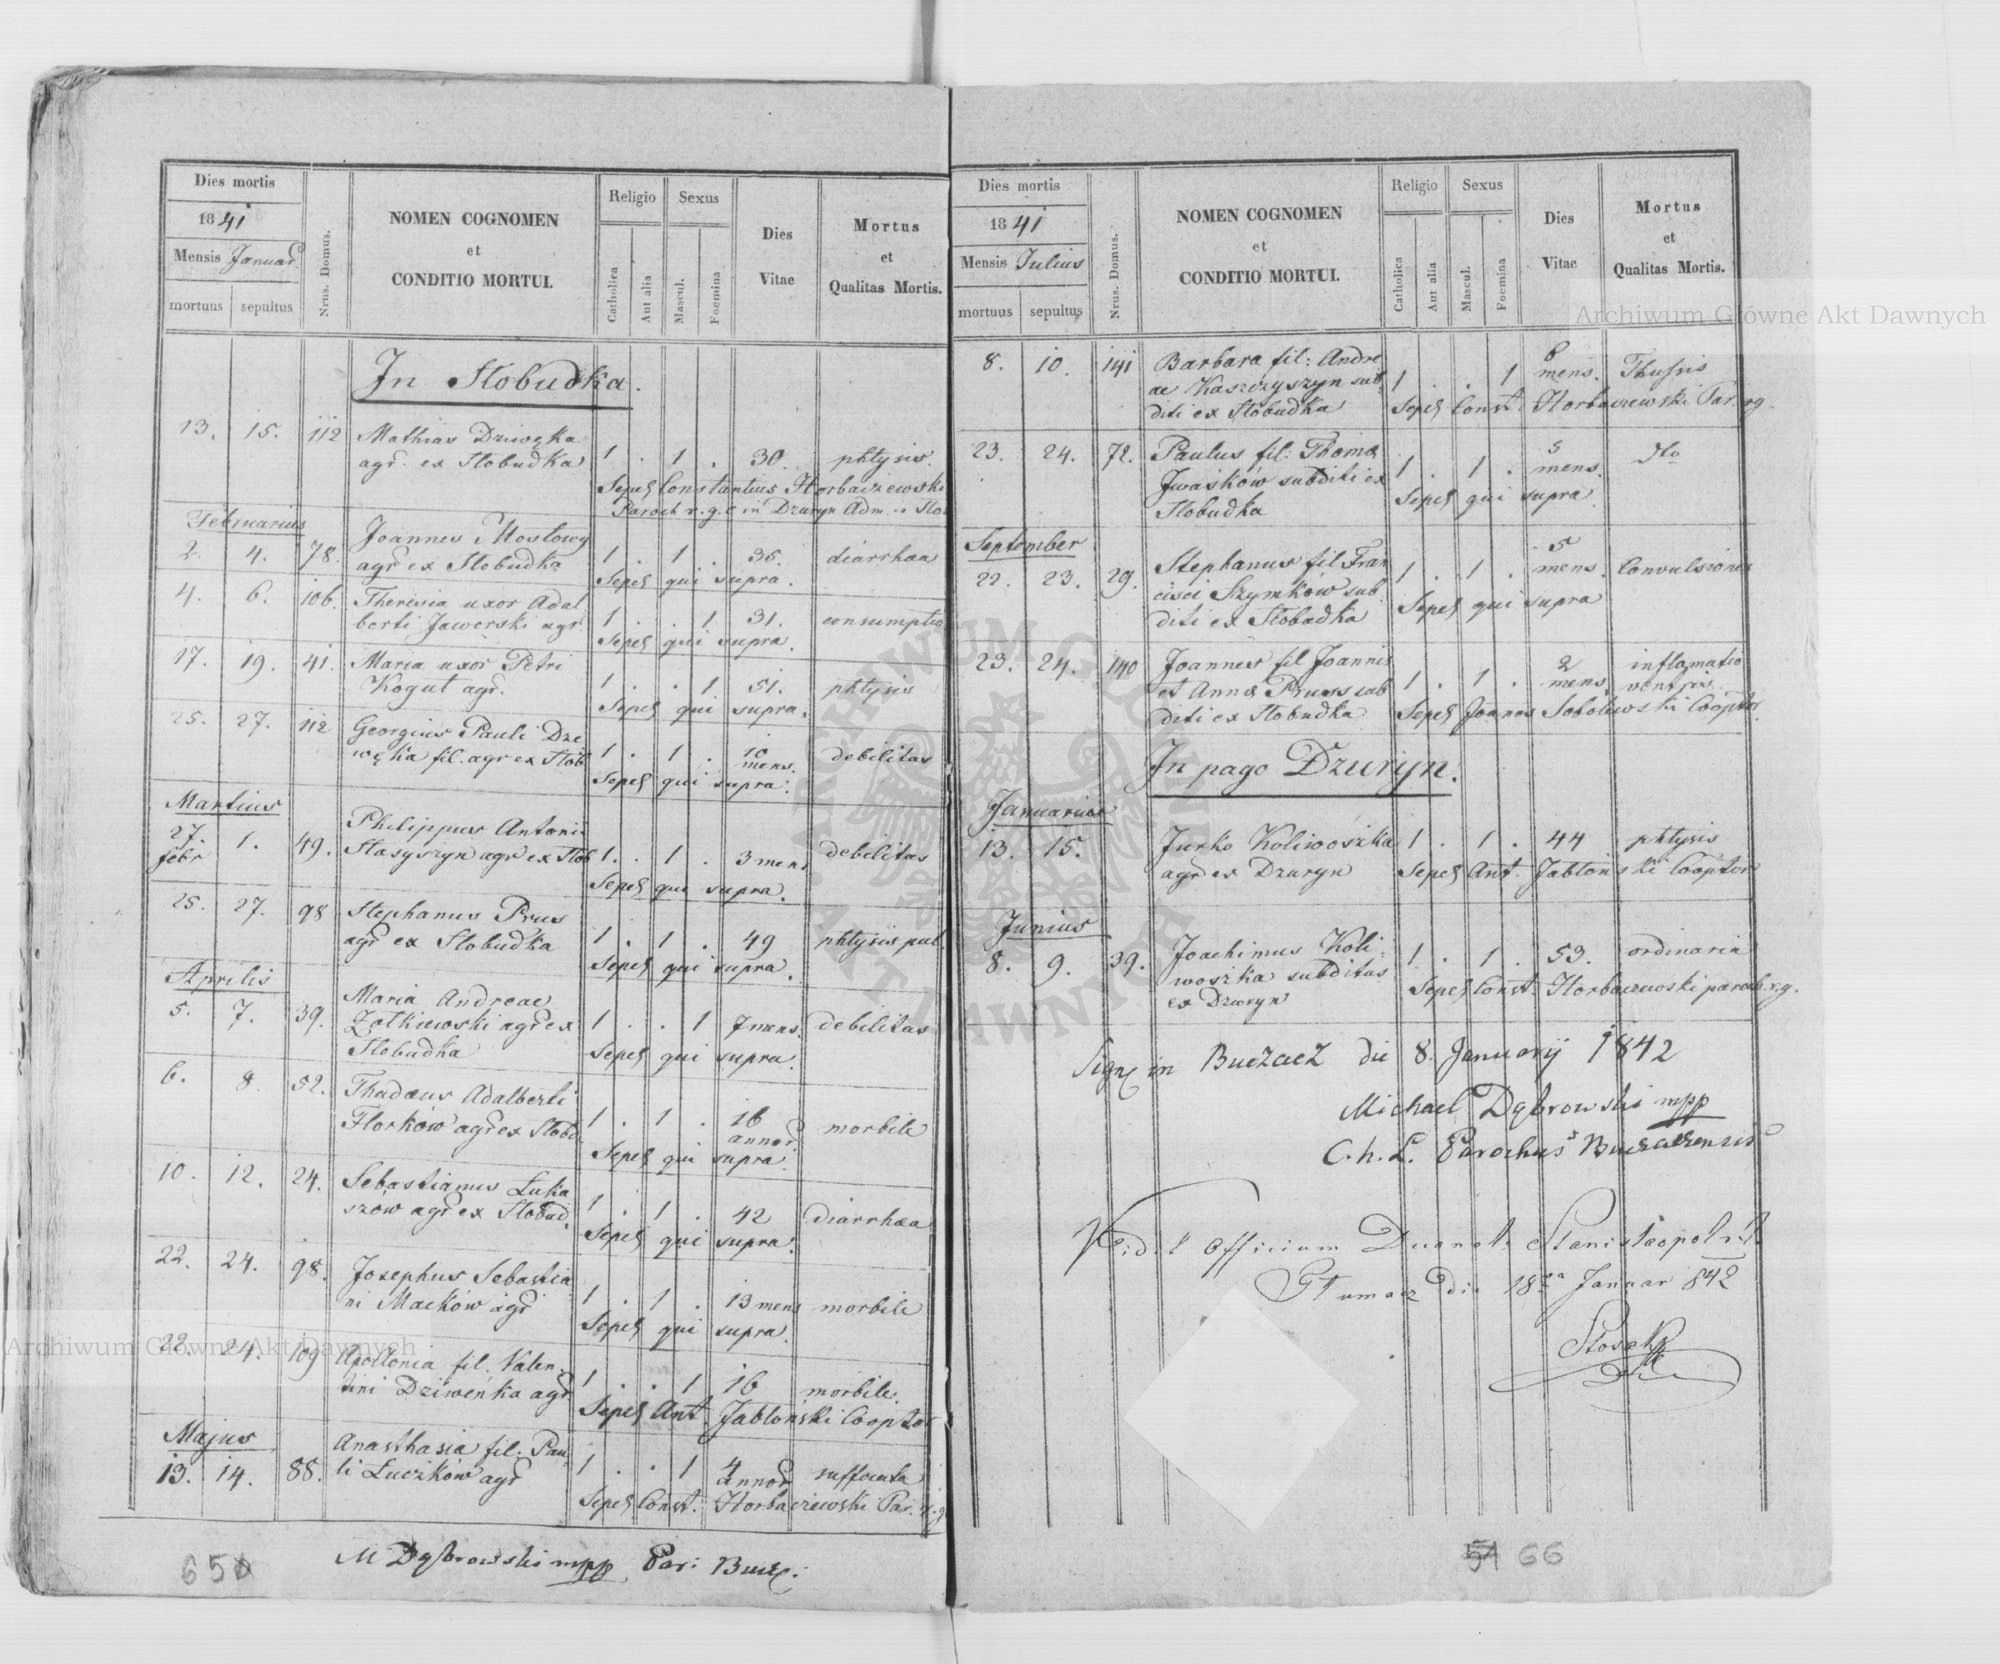 Dies mortis
1841
Mensis Januar.
mortuus sepultus
Nrus. Domus.
NOMEN COGNOMEN
et
CONDITIO MORTUI.
Religio
Catholica
Aut alia
Sexus
Mascul.
Foemina
Dies
Vitae
Mortus
et
Qualitas Mortis.
In Slobudka.
13. 15. 112 Mathias Dziwęka 1 . 1 . 30. phtysis.
agr. ex Slobudka
Sepel Constantius Horbaczewski
Paroch r. g. c in Dzuryn Adm. Slo
Februarius
2. 4. 78. Joannes Mostowy 1 . 1 . 36. diarrhaa
agr ex Slobudka
Sepel qui supra.
4. 6. 106. Theresia uxor Adal 1 . . 1 31. consumptio
berti Jaworski agr.
Sepel qui supra.
17. 19. 41. Maria uxor Petri 1 . . 1 51. phtysis
Kogut agr.
Sepel qui supra.
25. 27. 112 Georgius Pauli Dze 1 . 1 . 10 mens. debilitas
węka fil. agr ex Slob
Sepel qui supra.
Martius
27. febr 1. 49. Philippus Antoni 1 . 1 . 3 mens debilitas
Stasyszyn agr ex Slob
Sepel qui supra.
25. 27. 98 Stephanus Prus 1 . 1 . 49 phtysis pul.
agr ex Slobudka
Sepel qui supra.
Aprilis
5. 7. 39. Maria Andreae 1 . . 1 7 mens. debilitas
Żołkiewski agr ex
Slobudka
Sepel qui supra.
6. 8 52. Thadæus Adalberti 1 . 1 . 16 annor morbile
Florków agr ex Slobd.
Sepel qui supra.
10. 12. 24. Sebastianus Łuka 1 . 1 . 42 diarrhæa
szów agr ex Slobud.
Sepel qui supra.
22. 24. 98. Josephus Sebastia 1 . 1 . 13 mens morbile
ni Maćków agr
Sepel qui supra.
22. 24. 109 Apollonia fil. Valen- 1 . . 1 16 morbile.
tini Dziweńka agr
Sepel Ant. Jabłoński Cooptor
Majus
13. 14. 88. Anasthasia fil. Pau 1 . . 1 4 annor suffocata
li Łuczków agr
Sepel Const. Horbaczewski Par. r. g
M Dąbrowski mpp. Par: Bucz.
65
Dies mortis
1841
Mensis Julius
mortuus sepultus
Nrus. Domus.
NOMEN COGNOMEN
et
CONDITIO MORTUI.
Religio
Catholica
Aut alia
Sexus
Mascul.
Foemina
Dies
Vitae
Mortus
et
Qualitas Mortis.
8. 10. 141 Barbara fil: Andre 1 . . 1 mens. Thussis
ae Kaszczyszyn sub
diti ex Slobudka
Sepel Const. Horbaczewski Par. rg.
23. 24. 72. Paulus fil. Thomæ 1 . 1 . 5 mens. dto
Iwasków subditi ex
Slobudka
Sepel qui supra
September
22. 23. 29. Stephanus fil Fran 1 . 1 . 5 mens. Convulsiones
cisci Szymków sub
diti ex Slobudka
Sepel qui supra
23. 24. 140 Joannes fil Joannis 1 . 1 . 2 mens inflamatio
et Annæ Pruss sub ventris.
diti ex Slobudka
Sepel Joanes Sobolewski Cooptor
In pago Dzuryn.
Januarius
13. 15. Jurko Koliwoszka 1 . 1 . 44 phtysis
agr ex Dzuryn
Sepel Ant. Jabłoński Cooptor
Junius
8. 9. 39. Joachimus Koli 1 . 1 . 53. ordinaria
woszka subditus
ex Dzuryn
Sepel Const. Horbaczewski paroch. r. g.
Sign in Buczacz die 8. Januarij 1842
Michael Dąbrowski mpp
C. h. L. Parochus Buczacensis
Vidit Officium Decanale Stanislaopol
Tłumacz die 18 Januar 842
51 66
Archiwum Główne Akt Dawnych
Archiwum Główne Akt Dawnych
ARCHIWUM GŁÓWNE AKT DAWNYCH